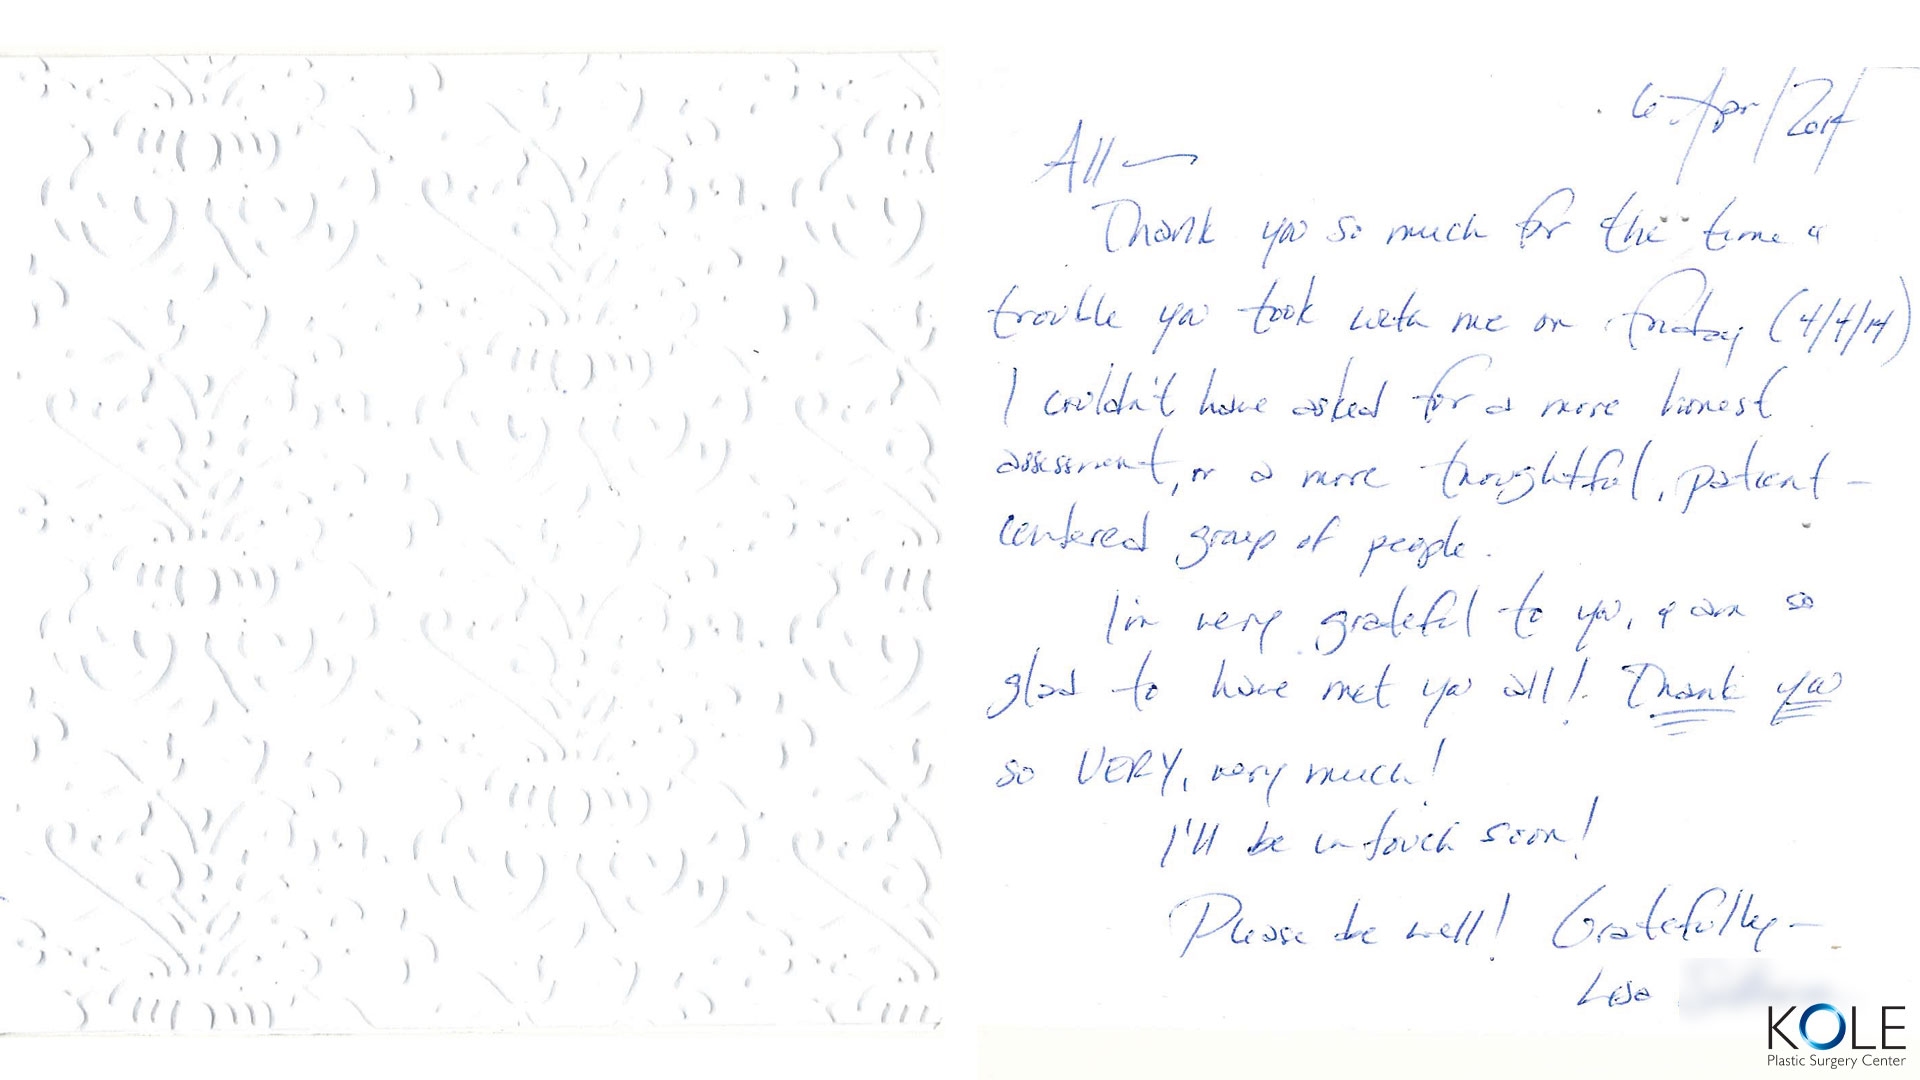 6 Apr/2014
All —
Thank you so much for the time &
trouble you took with me on Friday (4/4/14)
I couldn't have asked for a more honest
assessment, or a more thoughtful, patient-
centered group of people.
I'm very grateful to you, & am so
glad to have met you all! Thank you
so VERY, very much!
I'll be in touch soon!
Please be well! Gratefully —
Lisa
KOLE
Plastic Surgery Center